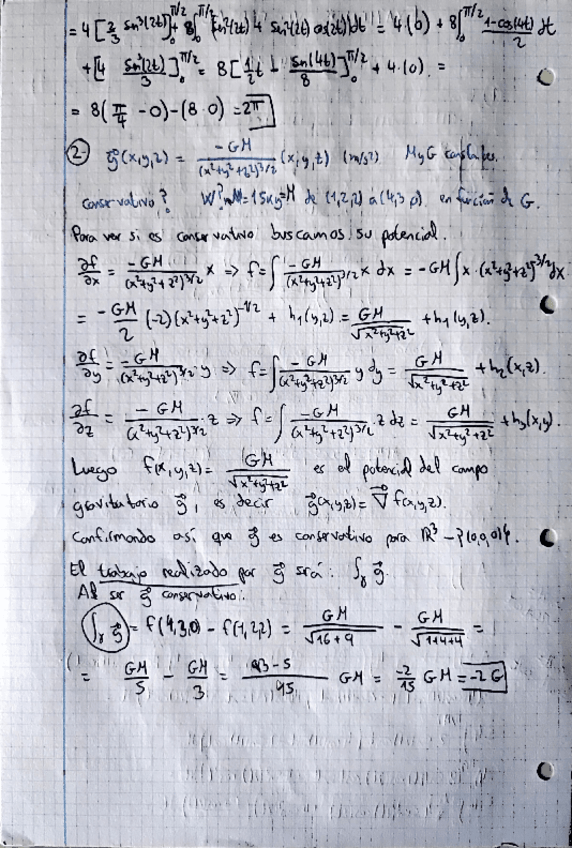 = 4 [2/3 sen³(2t)]₀^{π/2} + 8∫₀^{π/2} (sen²(2t) + sen²(2t) cos(2t)) dt = 4·(0) + 8∫₀^{π/2} (1-cos(4t))/2 dt
+ [4 sen³(2t)/3]₀^{π/2} = 8 [1/2 t - sen(4t)/8]₀^{π/2} + 4·(0) =
= 8(π/4 - 0) - (8·0) = 2π
② g(x,y,z) = -GM/(x²+y²+z²)^{3/2} (x,y,z) (m/s²) M y G constantes.
conservativo? W? M=15kg de (1,2,2) a (4,3,0) en función de G.
Para ver si es conservativo buscamos su potencial.
∂f/∂x = -GM/(x²+y²+z²)^{3/2} x ⇒ f = ∫ -GM/(x²+y²+z²)^{3/2} x dx = -GM ∫ x·(x²+y²+z²)^{-3/2} dx
= -GM/2 (-2)(x²+y²+z²)^{-1/2} + h₁(y,z) = GM/√(x²+y²+z²) + h₁(y,z).
∂f/∂y = -GM/(x²+y²+z²)^{3/2} y ⇒ f = ∫ -GM/(x²+y²+z²)^{3/2} y dy = GM/√(x²+y²+z²) + h₂(x,z).
∂f/∂z = -GM/(x²+y²+z²)^{3/2} · z ⇒ f = ∫ -GM/(x²+y²+z²)^{3/2} · z dz = GM/√(x²+y²+z²) + h₃(x,y).
Luego f(x,y,z) = GM/√(x²+y²+z²) es el potencial del campo
gravitatorio g, es decir g(x,y,z) = ∇ f(x,y,z).
Confirmando así que g es conservativo para ℝ³ - {(0,0,0)}.
El trabajo realizado por g será: ∫_γ g.
Al ser g conservativo:
∫_γ g = f(4,3,0) - f(1,2,2) = GM/√(16+9) - GM/√(1+4+4) =
= GM/5 - GM/3 = (3-5)/15 GM = -2/15 GM = -2G